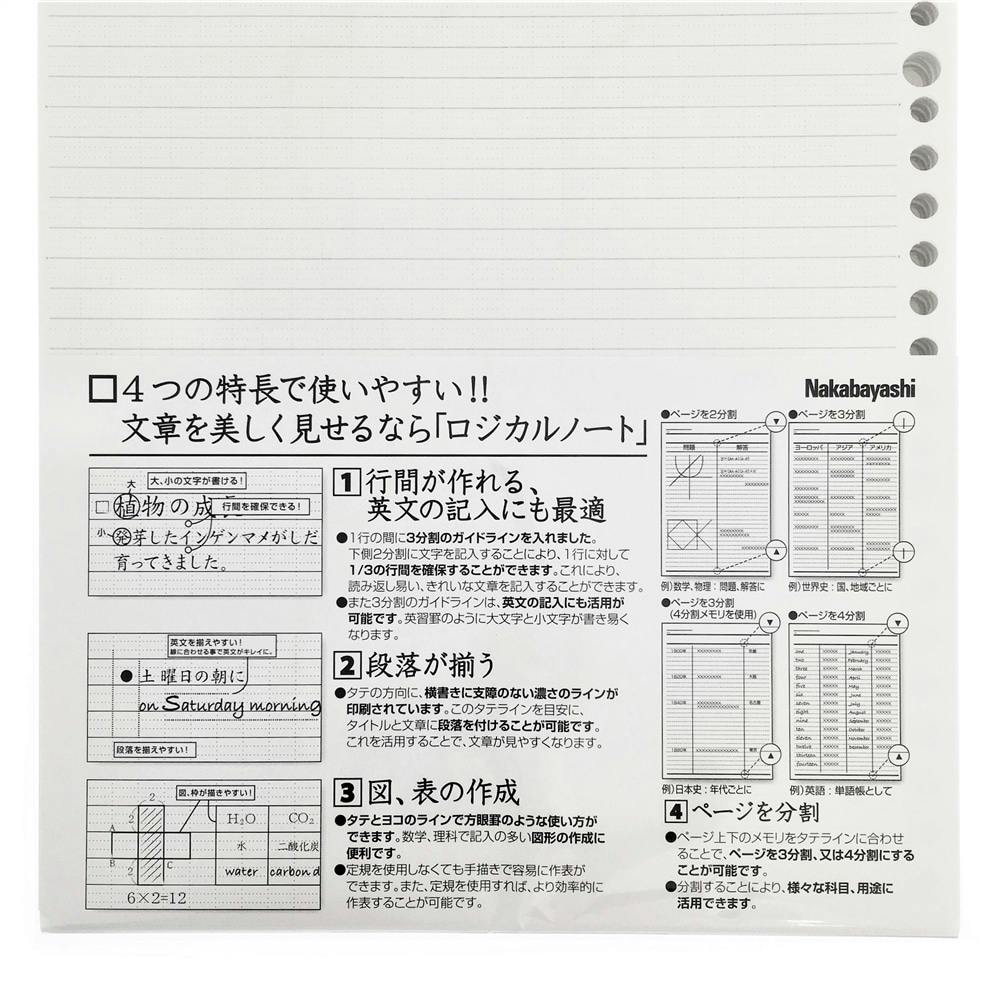 □4つの特長で使いやすい!!
文章を美しく見せるなら「ロジカルノート」
Nakabayashi
大、小の文字が書ける!
大
行間を確保できる!
□植物の成長
小
発芽したインゲンマメがしだ
育ってきました。
1 行間が作れる、
英文の記入にも最適
●1行の間に3分割のガイドラインを入れました。
下側2分割に文字を記入することにより、1行に対して
1/3の行間を確保することができます。これにより、
読み返し易い、きれいな文章を記入することができます。
●また3分割のガイドラインは、英文の記入にも活用が
可能です。英習罫のように大文字と小文字が書き易く
なります。
英文を揃えやすい!
線に合わせる事で英文がキレイに。
●土曜日の朝に
on Saturday morning
段落を揃えやすい!
2 段落が揃う
●タテの方向に、横書きに支障のない濃さのラインが
印刷されています。このタテラインを目安に、
タイトルと文章に段落を付けることが可能です。
これを活用することで、文章が見やすくなります。
図、枠が描きやすい!
2
2
A
B
C
2
6×2=12
H₂O CO₂
水 二酸化炭
water carbon d
3 図、表の作成
●タテとヨコのラインで方眼罫のような使い方が
できます。数学、理科で記入の多い図形の作成に
便利です。
●定規を使用しなくても手描きで容易に作表が
できます。また、定規を使用すれば、より効率的に
作表することが可能です。
●ページを2分割
問題 解答
例)数学、物理:問題、解答に
●ページを3分割
ヨーロッパ アジア アメリカ
例)世界史:国、地域ごとに
●ページを3分割
(4分割メモリを使用)
京都
大阪
名古屋
東京
例)日本史:年代ごとに
●ページを4分割
one January
two February
three March
four April
five May
six June
seven July
eight August
nine September
ten October
eleven November
twelve December
thirteen
fourteen
例)英語:単語帳として
4 ページを分割
●ページ上下のメモリをタテラインに合わせ
ることで、ページを3分割、又は4分割にする
ことが可能です。
●分割することにより、様々な科目、用途に
活用できます。